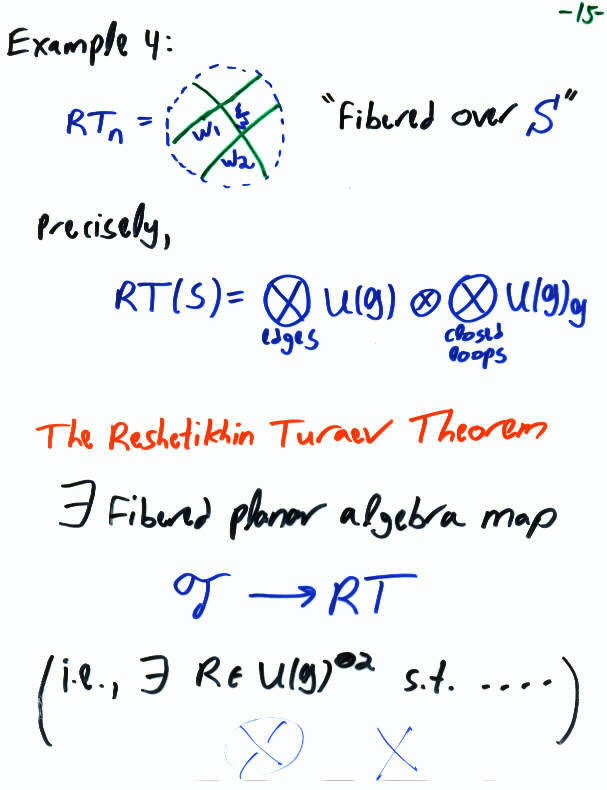 -15-
Example 4:
RTₙ = W₁ W₂ W₃ "Fibered over S"
Precisely,
RT(S) = ⊗ U(g) ⊗ ⊗ U(g)g
edges closed loops
The Reshetikhin Turaev Theorem
∃ Fibered planar algebra map
𝒯 → RT
(i.e., ∃ R ∈ U(g)^⊗2 s.t. ....)